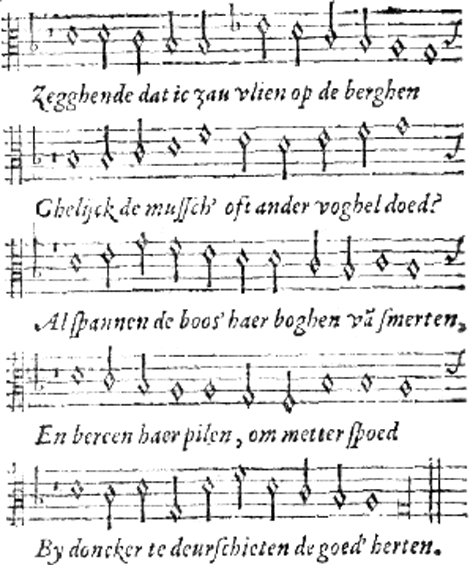 Zegghende dat ic zau vlien op de berghen
Ghelijck de muſſch’ oft ander voghel doed?
Al ſpannen de boos’ haer boghen vã ſmerten,
En bereen haer pilen, om metter ſpoed
By doncker te deurſchieten de goed’ herten.